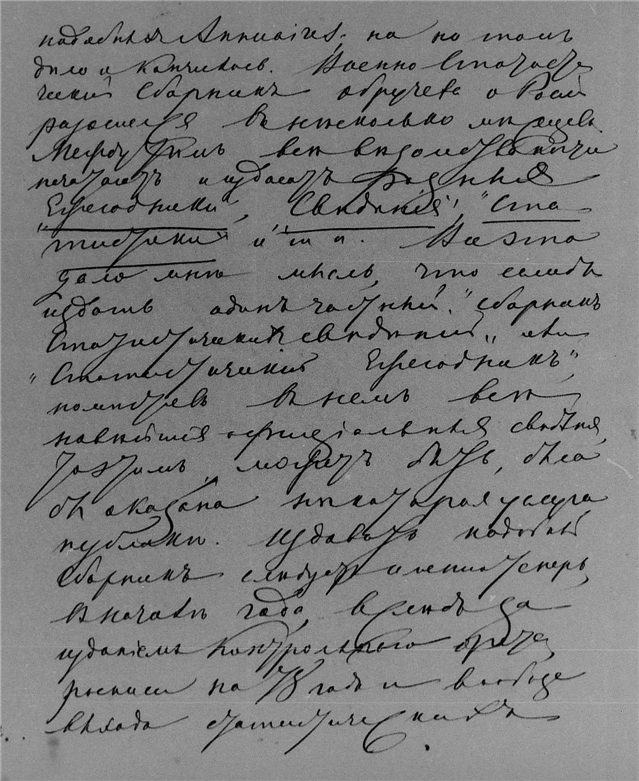 подобныя Annuaires. но на томъ
дѣло и кончилось. Военно Статисти
ческій Сборникъ Обручева о Россіи
разошелся въ нѣсколько мѣсяцевъ.
Между тѣмъ всѣ вѣдомства почти
печатаютъ и издаютъ разныя
"Ежегодники", "Свѣдѣнія", "Ста
тистики" и т п. Все это
дало мнѣ мысль, что еслибы
издать одинъ частный "Сборникъ
Статистическихъ свѣдѣній" или
"Статистическій Ежегодникъ",
помѣстивъ въ немъ всѣ
новѣйшія оффиціальныя свѣдѣнія,
то этимъ, можетъ быть, была
бы оказана нѣкоторая услуга
публикѣ. Издавать подобный
Сборникъ слѣдуетъ именно теперь,
въ началѣ года, вслѣдъ за
изданіемъ Контрольнаго отчета,
росписи на 78 годъ и вообще
выхода статистическихъ